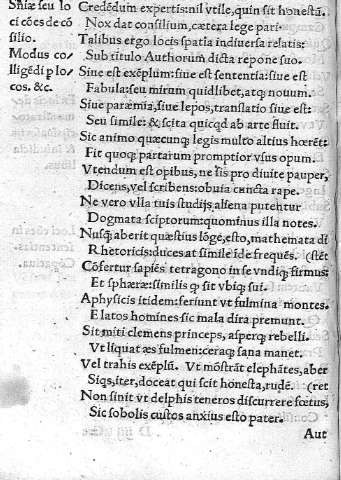 Sn̄iæ seu lo
ci cões de cō
silio.
Modus co
lligēdi p lo
cos. &c.
Credēdum expertis: nil vtile, quin sit honestū.
Nox dat consilium, cætera lege pari.
Talibus ergo locis spatia indiuersa relatis:
Sub titulo Authorum dicta repone suo.
Siue est exēplum: siue est sententia: siue est
Fabula: seu mirum quidlibet, atq; nouum.
Siue parœmia, siue lepos, translatio siue est:
Seu simile: & scita quicqd ab arte fluit.
Sic animo quæcunq; legis multo altius hœrēt:
Fit quoq; partarum promptior vsus opum.
Vtendum est opibus, ne sis pro diuite pauper,
Dicens, vel scribens: obuia cuncta rape.
Ne vero vlla tuis studijs aliena putentur
Dogmata scriptorum: quominus illa notes.
Nusq̄; aberit quæstius lōge, esto, mathemata di
Rhetoricis: duces at simile īde frequēs. (stēt
Cōfertur sapiēs tetragono in se vndiq; firmus:
Et sphæræ: similis q; sit vbiq; sui.
A physicis itidem: feriunt vt fulmina montes.
Elatos homines sic mala dira premunt.
Sit miti clemens princeps, asperq; rebelli.
Vt liquat æs fulmen: ceraq; sana manet.
Vel trahis exēplū. Vt mōstrāt elephātes, aber
Siqs, iter, doceat qui scit honesta, rudē. (ret
Non sinit vt delphis teneros discurrere fœtus,
Sic sobolis custos anxius esto pater.
Aut